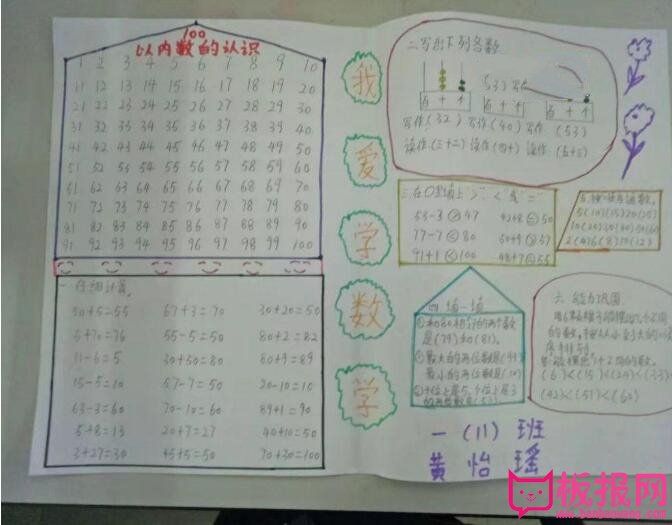 100
以内数的认识
1 2 3 4 5 6 7 8 9 10
11 12 13 14 15 16 17 18 19 20
21 22 23 24 25 26 27 28 29 30
31 32 33 34 35 36 37 38 39 40
41 42 43 44 45 46 47 48 49 50
51 52 53 54 55 56 57 58 59 60
61 62 63 64 65 66 67 68 69 70
71 72 73 74 75 76 77 78 79 80
81 82 83 84 85 86 87 88 89 90
91 92 93 94 95 96 97 98 99 100
50+5=55 67+3=70 30+20=50
55-5=50 80+2=82
11-6=5 30+50=80 80+9=89
15-5=10 57-7=50 20-10=10
63-3=60 70-10=60 89+1=90
5+8=13 20+7=27 40+10=50
3+27=30 45+5=50 70+30=100
我
爱
学
数
学
二、写出下列各数
百 十 个 百 十 个 百 十 个
写作(32) 写作(40) 写作(53)
读作(三十二) 读作(四十) 读作(五十三)
三、在○里填上">"、"<"或"="
53-3>47 42+8=50
77-7<80 50+9>57
91+1<100 48+7=55
四、填一填
①和80相邻的两个数
是(79)和(81)。
②最大的两位数是(99)
最小的两位数是(10)
③十位上是5,个位上是3
的两位数是(53)
六、能力巩固
(6)<(15)<(24)<(33)<
(42)<(51)<(60)
一(11)班
黄怡瑶
板报网